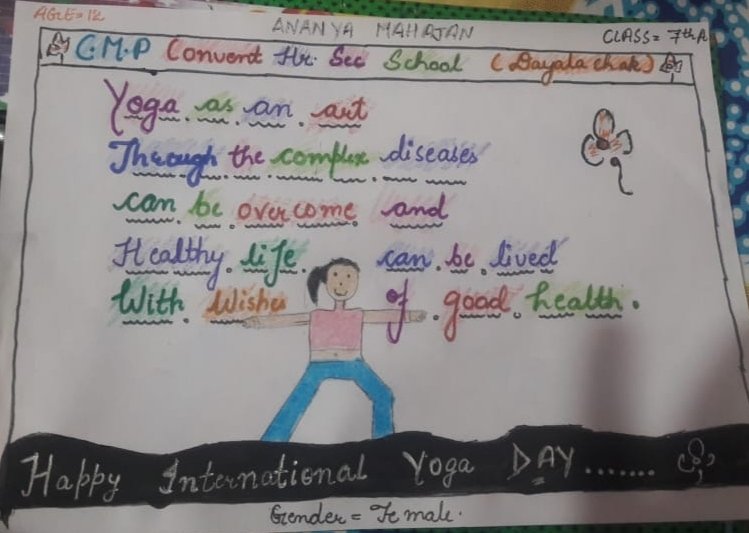 AGE=12
ANANYA MAHAJAN
CLASS= 7th A
G.M.P Convent Hr. Sec School (Dayala chak)
Yoga as an art
Through the complex diseases
can be overcome and
Healthy life can be lived
With Wishes of good health.
Happy International Yoga DAY.......
Gender = Female.